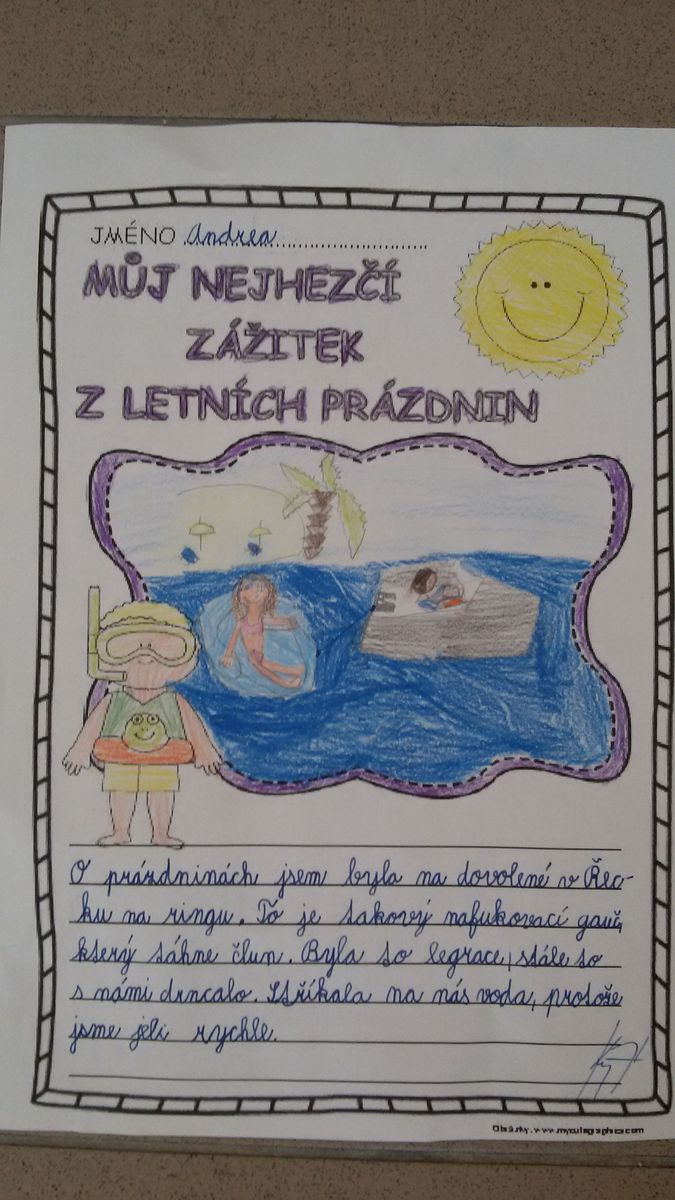 JMÉNO Andrea
MŮJ NEJHEZČÍ
ZÁŽITEK
Z LETNÍCH PRÁZDNIN
O prázdninách jsem byla na dovolené v Řec-
ku na ringu. To je takový nafukovací gauč,
který táhne člun. Byla to legrace, stále to
s námi drncalo. Stříkala na nás voda, protože
jsme jeli rychle.